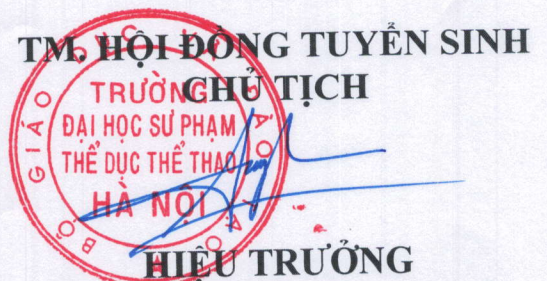 TM. HỘI ĐỒNG TUYỂN SINH
CHỦ TỊCH
BỘ GIÁO DỤC VÀ ĐÀO TẠO
TRƯỜNG
ĐẠI HỌC SƯ PHẠM
THỂ DỤC THỂ THAO
HÀ NỘI
HIỆU TRƯỞNG